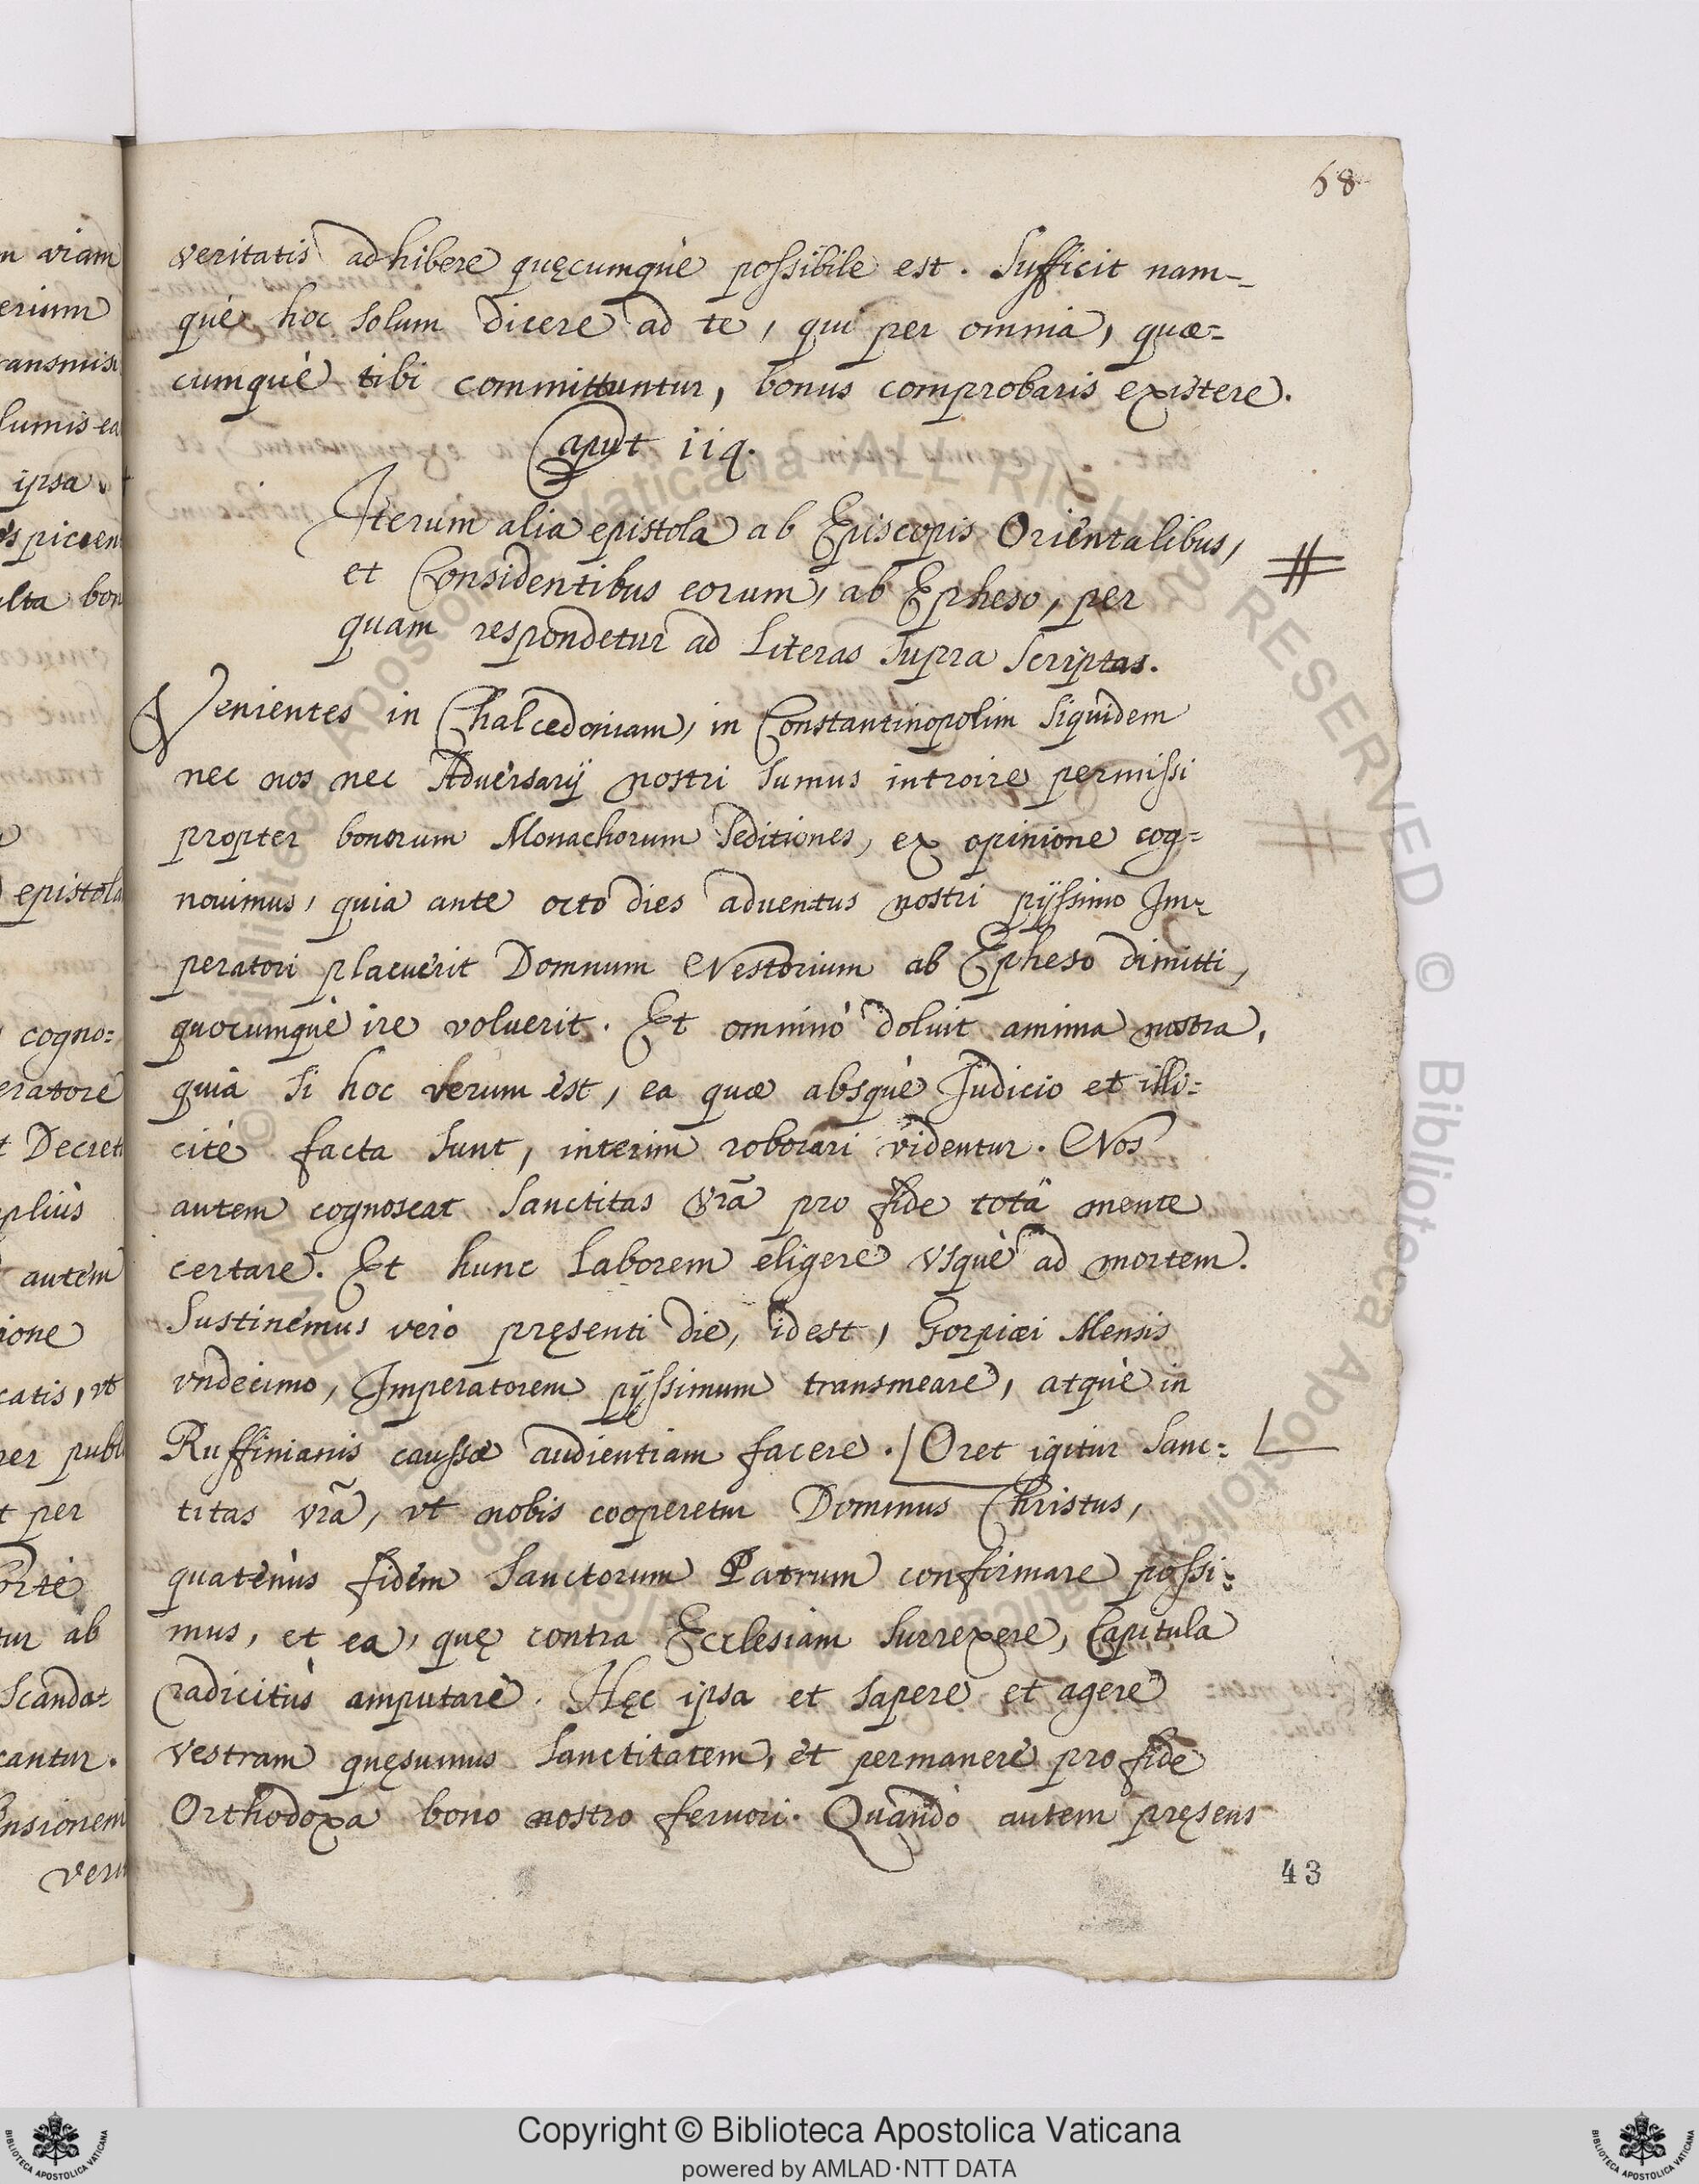 68
veritatis adhibere quęcumquè possibile est. Sufficit nam-
què hoc solum dicere ad te, qui per omnia, quæ=
cumquè tibi committuntur, bonus comprobaris existere.
Caput iiq.
Iterum alia epistola ab Episcopis Orientalibus,
et Considentibus eorum, ab Epheso, per
quam respondetur ad Literas supra scriptas.
Venientes in Chalcedoniam, in Constantinopolim siquidem
nec nos nec Adversarij nostri sumus introire permissi
propter bonorum Monachorum Seditiones, ex opinione cog=
nouimus, quia ante octo dies aduentus nostri pijssimo Im=
peratori placuerit Domnum Nestorium ab Epheso dimitti,
quocumquè ire voluerit. Et omninò doluit anima nostra,
quia si hoc verum est, ea quæ absquè Judicio et illi=
citè facta sunt, interim roborari videntur. Nos
autem cognoscat Sanctitas vrã pro fide totâ mente
certare. Et hunc Laborem eligere vsquè ad mortem.
Sustinemus verò pręsenti die, idest, Gorpiæi Mensis
vndecimo, Imperatorem pijssimum transmeare, atquè in
Ruffinianis caussæ audientiam facere. Oret igitur Sanc=
titas vrã, vt nobis cooperetur Dominus Christus,
quatenùs fidem Sanctorum Patrum confirmare possi=
mus, et ea, quę contra Ecclesiam surrexere, Capitula
radicitùs amputare. Hęc ipsa et sapere et agere
vestram quęsumus Sanctitatem, et permanere pro fide
Orthodoxa bono nostro feruori. Quandò autem pręsens
43
n viam
erium
ipsa
epistola
cogno=
eratore
plius
autem
ione
catis, vt
per
tur ab
Scanda=
cantur.
nsionem
Copyright © Biblioteca Apostolica Vaticana
powered by AMLAD·NTT DATA